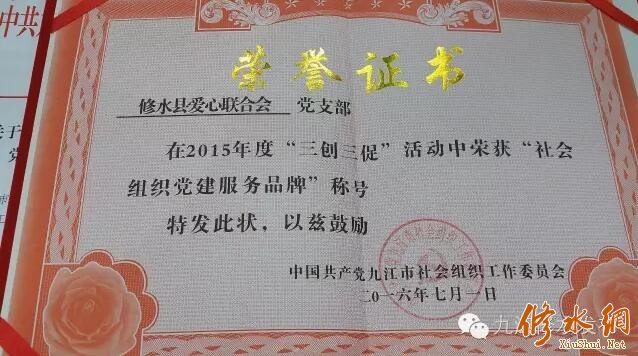 荣誉证书
修水县爱心联合会 党支部
在2015年度“三创三促”活动中荣获“社会
组织党建服务品牌”称号
特发此状，以兹鼓励
中国共产党九江市社会组织工作委员会
二〇一六年七月一日
修水網
XiuShui.Net